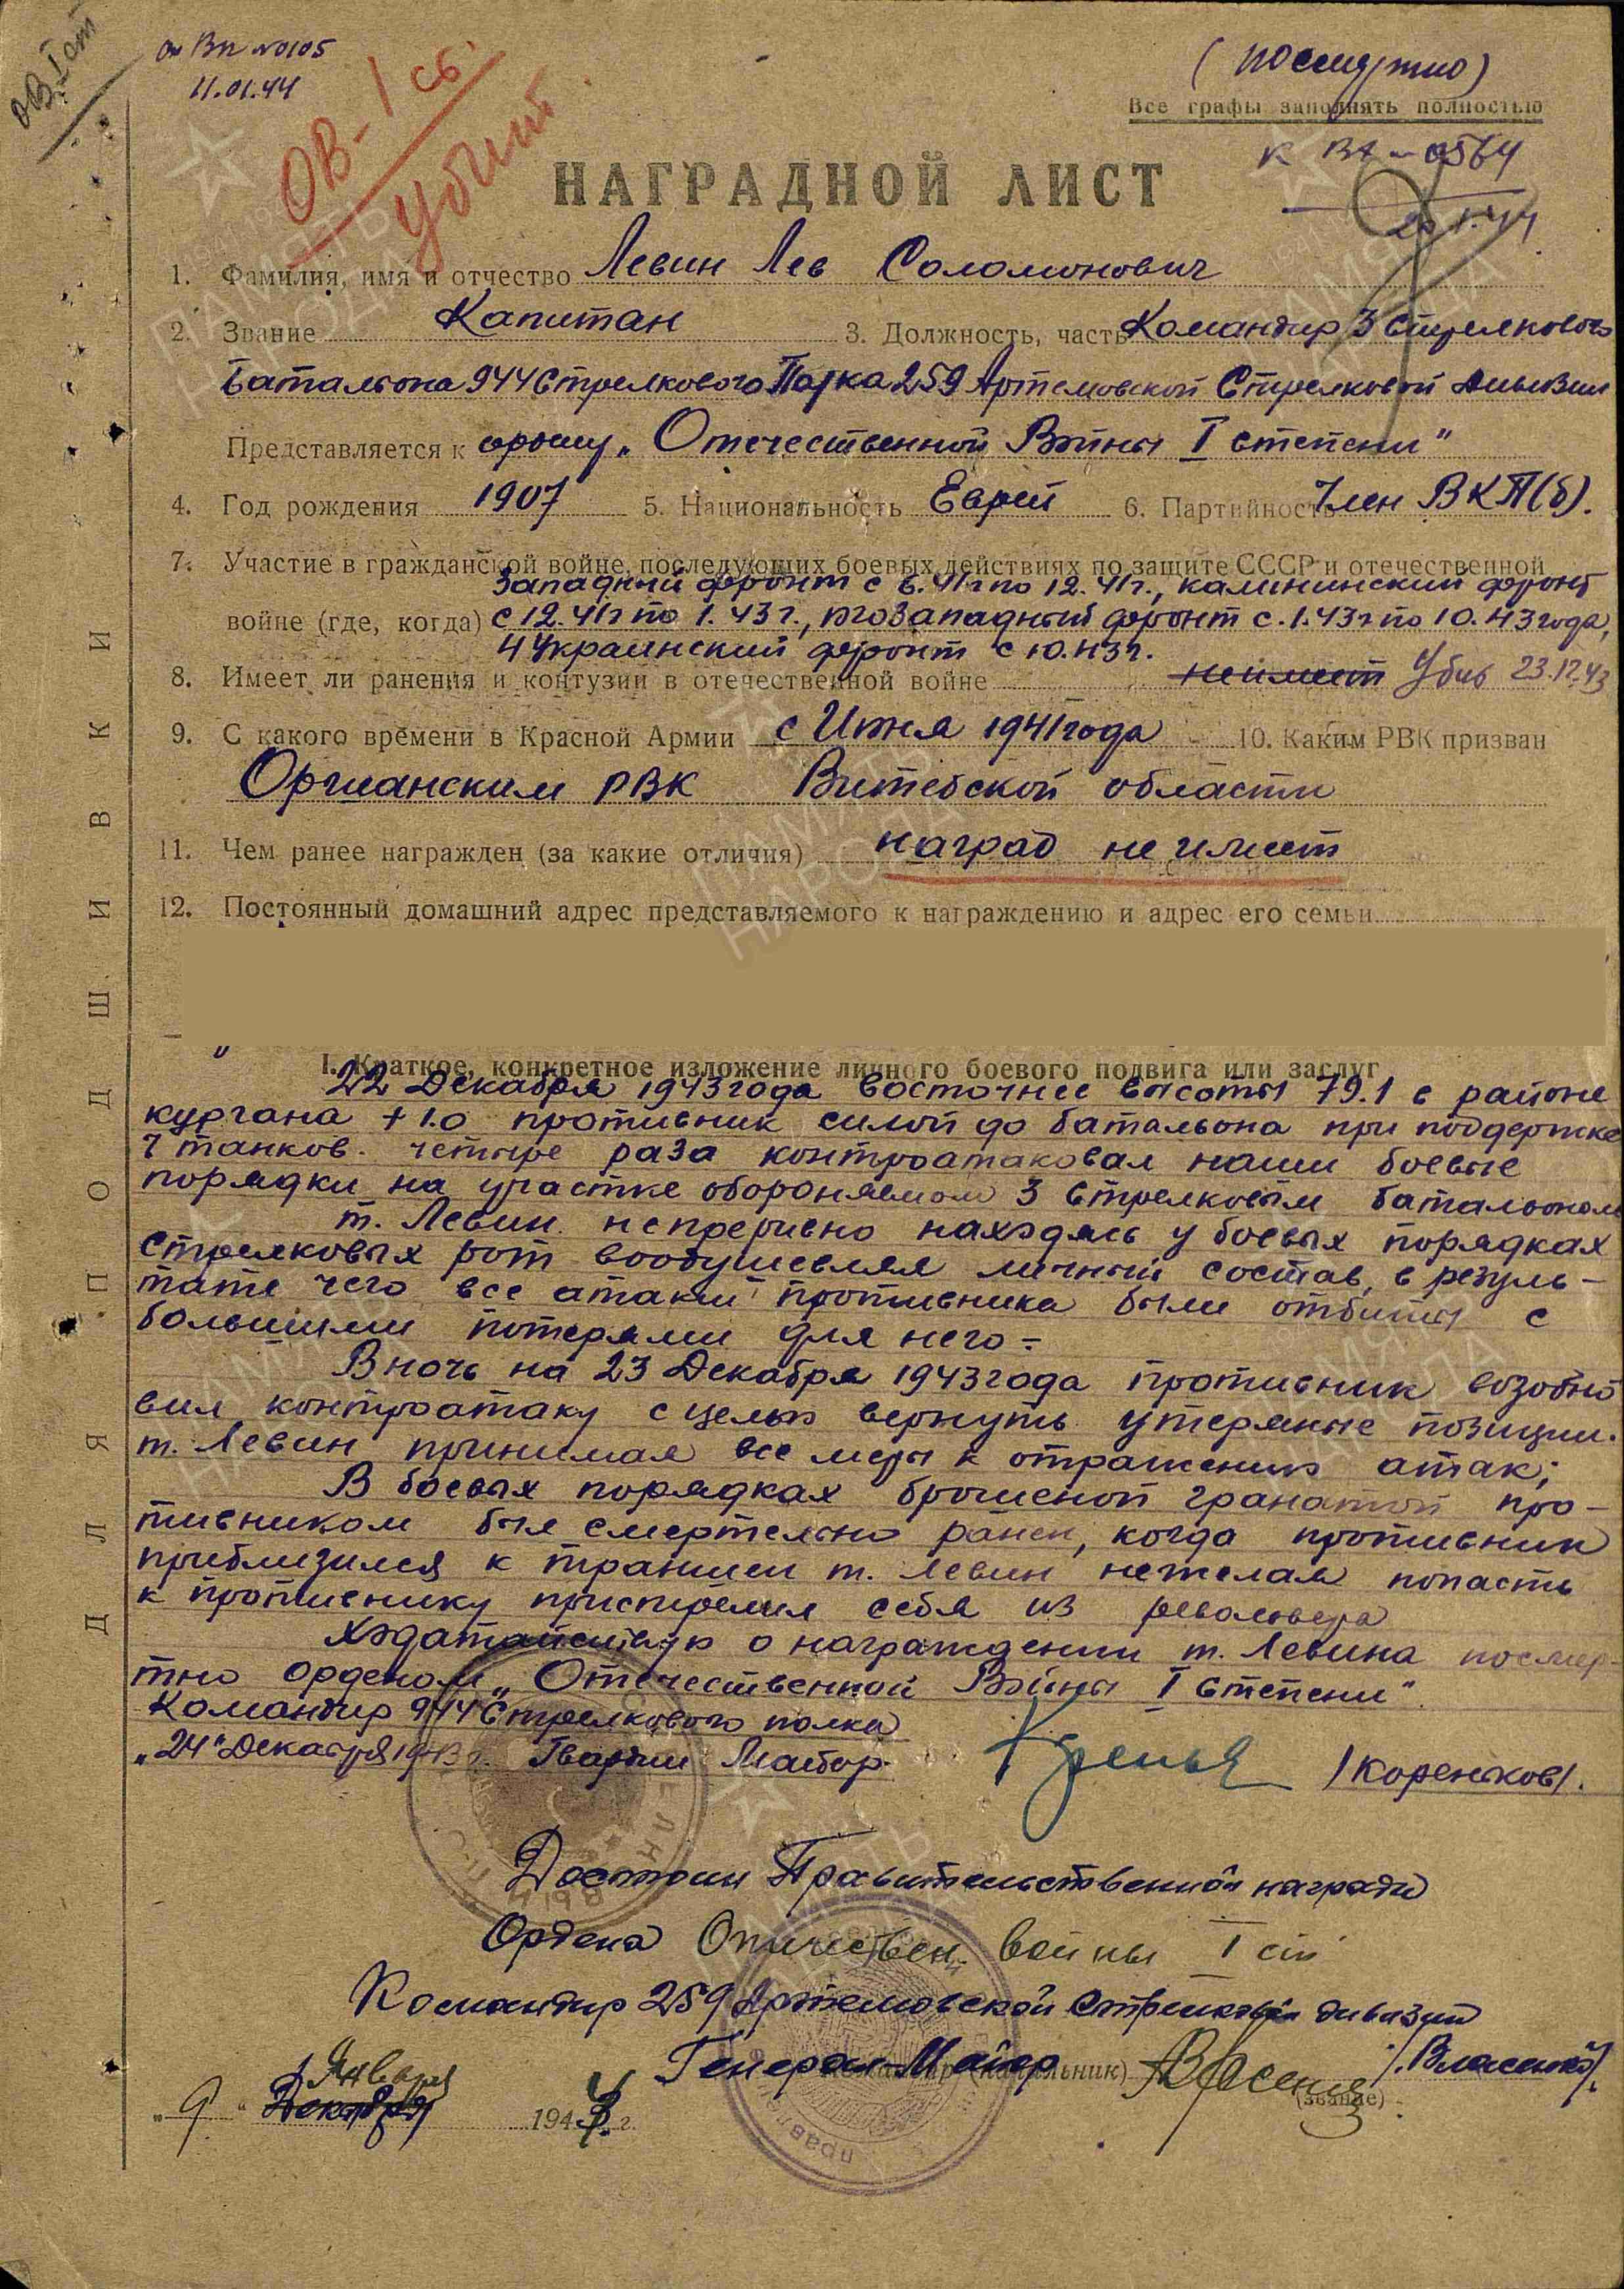 ОВ-Iст
Вх №0105
11.01.44
ОВ-I св.
убит
(посмертно)
Все графы заполнять полностью
НАГРАДНОЙ ЛИСТ
1. Фамилия, имя и отчество Левин Лев Соломонович
2. Звание Капитан 3. Должность, часть Командир 3 Стрелкового
Батальона 944 Стрелкового Полка 259 Артемовской Стрелковой Дивизии
Представляется к ордену „Отечественной Войны I степени"
4. Год рождения 1907 5. Национальность Еврей 6. Партийность Член ВКП(б).
7. Участие в гражданской войне, последующих боевых действиях по защите СССР и отечественной
Западный фронт с 6.41г по 12.41г., калининский фронт
войне (где, когда) с 12.41г по 1.43г., югоЗападный фронт с.1.43г по 10.43года,
4 Украинский фронт с 10.43г.
8. Имеет ли ранения и контузии в отечественной войне не имеет Убит 23.12.43
9. С какого времени в Красной Армии с Июня 1941года 10. Каким РВК призван
Оршанским РВК Витебской области
11. Чем ранее награжден (за какие отличия) наград не имеет
12. Постоянный домашний адрес представляемого к награждению и адрес его семьи
I. Краткое, конкретное изложение личного боевого подвига или заслуг
22 Декабря 1943года восточнее высоты 79.1 в районе
кургана +1.0 противник силой до батальона при поддержке
7 танков. четыре раза контратаковал наши боевые
порядки на участке обороняемом 3 Стрелковым батальоном
т. Левин. непрерывно находясь у боевых порядках
Стрелковых рот воодушевлял личный состав, в резуль-
тате чего все атаки противника были отбиты с
большими потерями для него=
В ночь на 23 Декабря 1943года противник возобно
вил контратаку с целью вернуть утеряные позиции.
т. Левин принимая все меры к отражению атак;
В боевых порядках брошеной гранатой про-
тивником был смертельно ранен, когда противник
приблизился к траншеи т. Левин нежелая попасть
к противнику пристрелил себя из револьвера
Ходатайствую о награждении т. Левина посмер-
тно орденом „Отечественной Войны I Степени".
Командир 944 Стрелкового полка
„24" Декабря 1943г. Гвардии Майор /Кореньков/.
Достоин Правительственной награды
Ордена Отечествен. войны I ст
Командир 259 Артемовской Стрелковой дивизии
Генерал-Майор (начальник) /Власенко/.
(звание)
„9" Января Декабря 1944 г.
ДЛЯ ПОДШИВКИ
ПАМЯТЬ НАРОДА